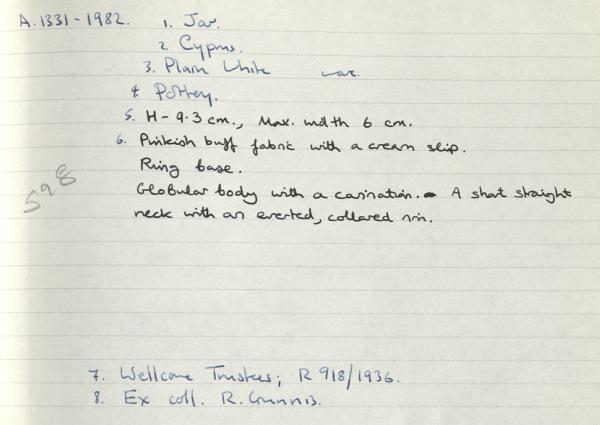 A.1331-1982. 1. Jar.
2. Cyprus.
3. Plain White ware.
4. Pottery.
5. H - 9.3 cm., Max. width 6 cm.
6. Pinkish buff fabric with a cream slip.
Ring base.
Globular body with a carination. - A short straight
neck with an everted, collared rim.
598
7. Wellcome Trustees; R 918/1936.
8. Ex coll. R. Gunnis.